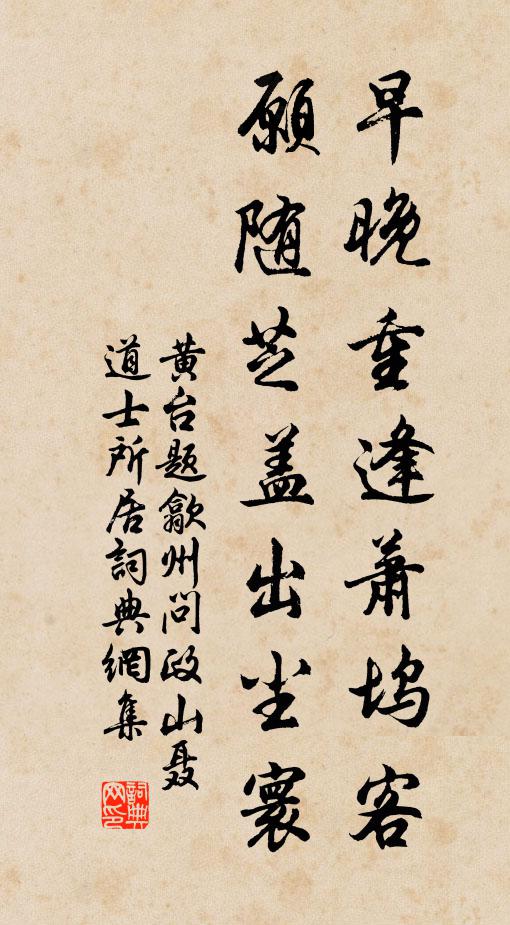 早晚重逢萧坞客
愿随芝盖出尘寰
黄台题歙州问政山聂
道士所居詞典網集
詞典
网印